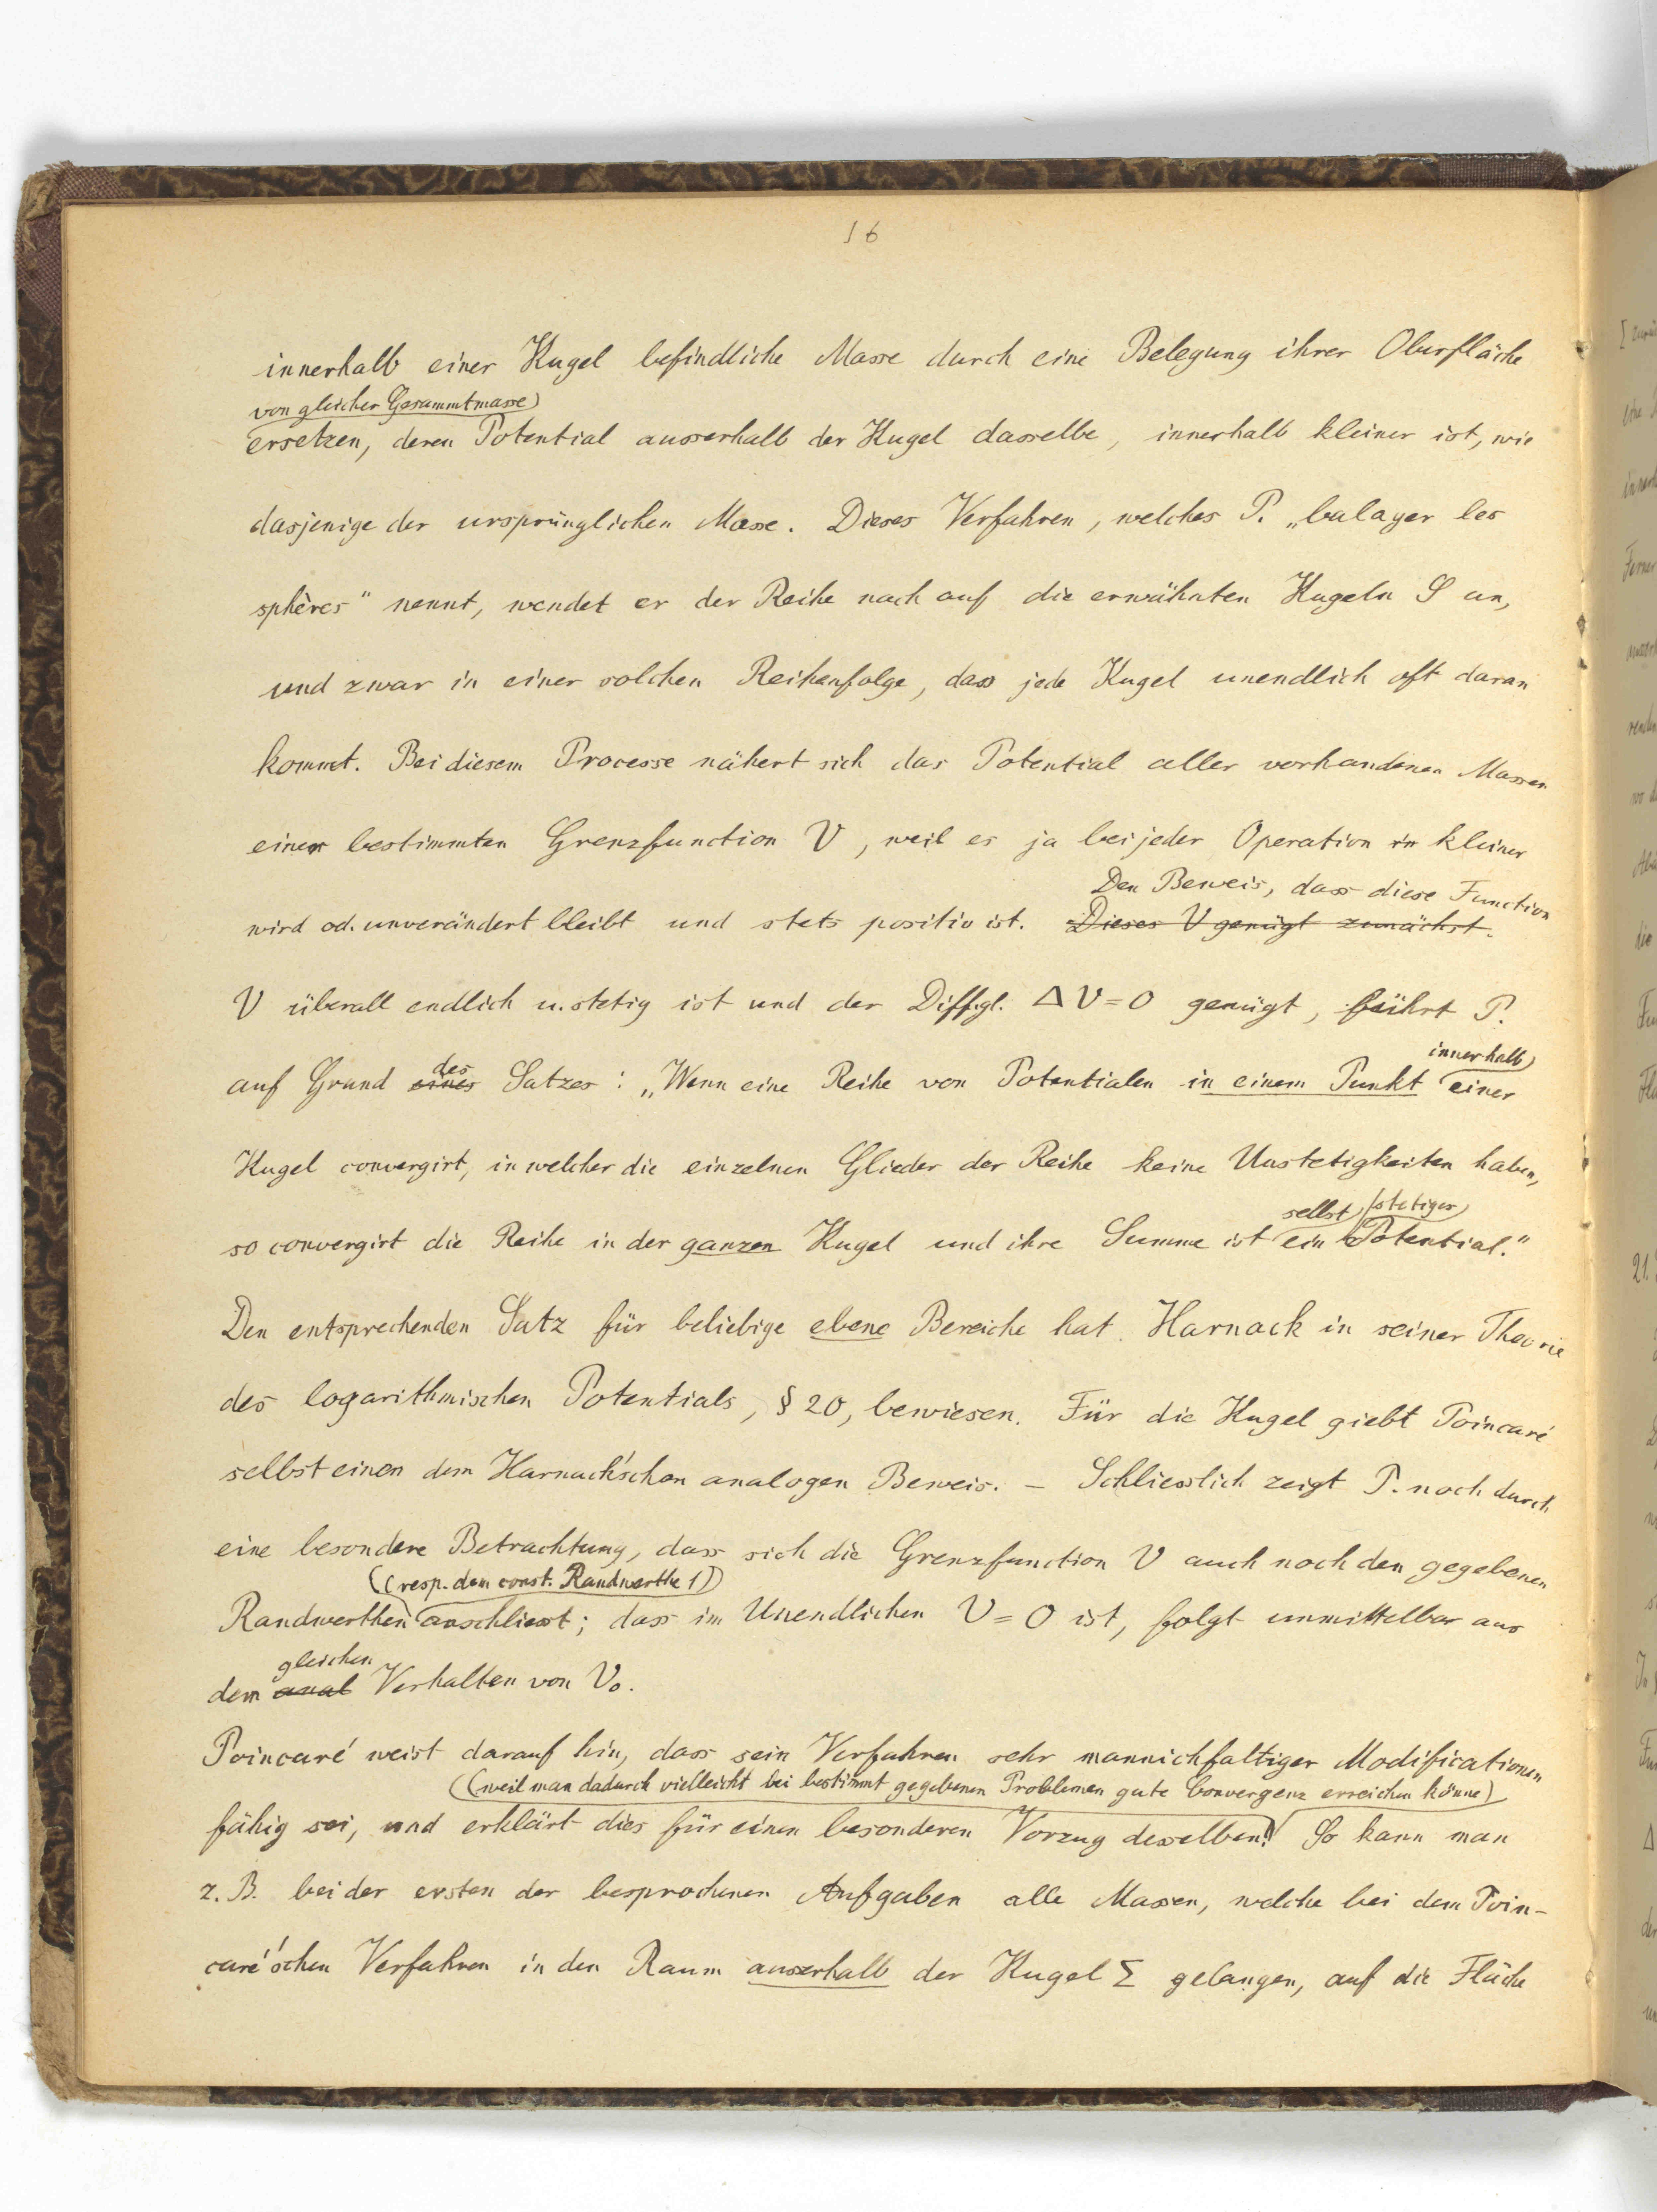 16
innerhalb einer Kugel befindliche Masse durch eine Belegung ihrer Oberfläche
von gleicher Gesammtmasse
ersetzen, deren Potential ausserhalb der Kugel dasselbe, innerhalb kleiner ist, wie
dasjenige der ursprünglichen Masse. Dieses Verfahren, welches P. „balayer les
sphères" nennt, wendet er der Reihe nach auf die erwähnten Kugeln S an,
und zwar in einer solchen Reihenfolge, dass jede Kugel unendlich oft daran
kommt. Bei diesem Processe nähert sich das Potential aller vorhandenen Massen
einer bestimmten Grenzfunction V, weil es ja bei jeder Operation in kleiner
Den Beweis, dass diese Function
wird od. unverändert bleibt und stets positiv ist. Dieses V genügt zunächst.
V überall endlich u. stetig ist und der Diff.gl. ΔV=0 genügt, führt P.
des innerhalb
auf Grund eines Satzes: „Wenn eine Reihe von Potentialen in einem Punkt einer
Kugel convergirt, in welcher die einzelnen Glieder der Reihe keine Unstetigkeiten haben,
selbst stetiges
so convergirt die Reihe in der ganzen Kugel und ihre Summe ist ein Potential."
Den entsprechenden Satz für beliebige ebene Bereiche hat Harnack in seiner Theorie
des logarithmischen Potentials, § 20, bewiesen. Für die Kugel giebt Poincaré
selbst einen dem Harnack'schen analogen Beweis. – Schliesslich zeigt P. noch durch
eine besondere Betrachtung, dass sich die Grenzfunction V auch noch den gegebenen
(resp. dem const. Randwerthe 1)
Randwerthen anschliesst; dass im Unendlichen V=0 ist, folgt unmittelbar aus
gleichen
dem anal Verhalten von V₀.
Poincaré weist darauf hin, dass sein Verfahren sehr mannichfaltiger Modificationen
(weil man dadurch vielleicht bei bestimmt gegebenen Problemen gute Convergenz erreichen könne)
fähig sei, und erklärt dies für einen besonderen Vorzug desselben. So kann man
z. B. bei der ersten der besprochenen Aufgaben alle Massen, welche bei dem Poin-
caré'schen Verfahren in den Raum ausserhalb der Kugel Σ gelangen, auf die Fläche